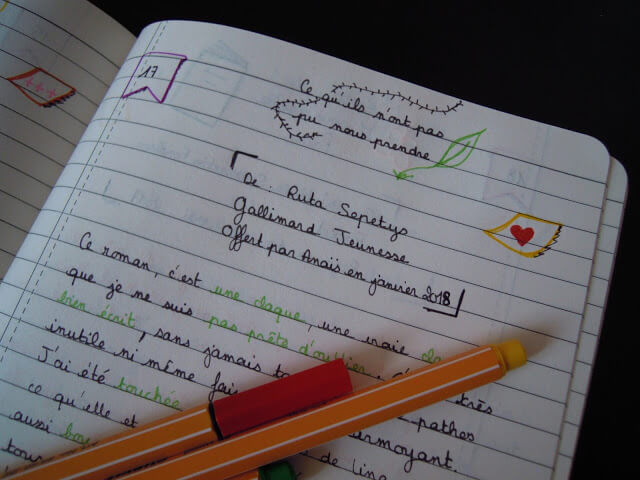 17
Ce qu'ils n'ont pas
pu nous prendre
De : Ruta Sepetys
Gallimard Jeunesse
Offert par Anaïs en janvier 2018
Ce roman, c'est une claque, une vraie
que je ne suis pas prête d'oublier.
bien écrit, sans jamais
très
inutile ni même
pathos
J'ai été touchée
larmoyant.
ce qu'elle et
de
aussi
tous